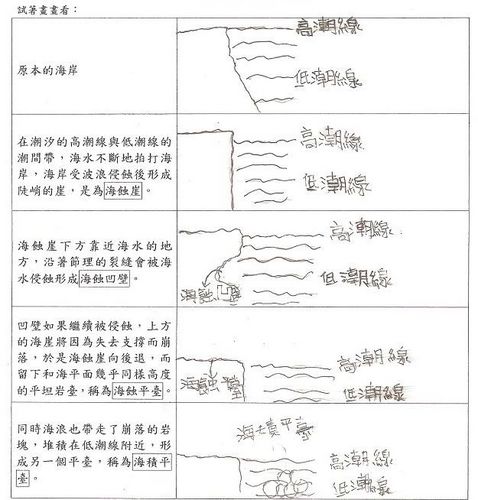 試著畫畫看：
原本的海岸
高潮線
低潮線
在潮汐的高潮線與低潮線的
潮間帶，海水不斷地拍打海
岸，海岸受波浪侵蝕後形成
陡峭的崖，是為海蝕崖。
高潮線
低潮線
海蝕崖下方靠近海水的地
方，沿著節理的裂縫會被海
水侵蝕形成海蝕凹壁。
高潮線
低潮線
海蝕凹壁
凹壁如果繼續被侵蝕，上方
的海崖將因為失去支撐而崩
落，於是海蝕崖向後退，而
留下和海平面幾乎同樣高度
的平坦岩臺，稱為海蝕平臺。
海蝕平臺
高潮線
低潮線
同時海浪也帶走了崩落的岩
塊，堆積在低潮線附近，形
成另一個平臺，稱為海積平
臺。
海積平臺
高潮線
低潮線